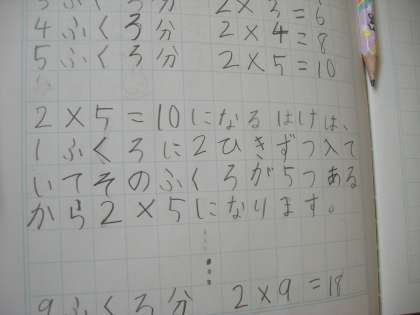 3ふくろ分 2×3=6
4ふくろ分 2×4=8
5ふくろ分 2×5=10
2×5=10になるはけは、
1ふくろに2ひきずつ入て
いてそのふくろが5つある
から2×5になります。
9ふくろ分 2×9=18